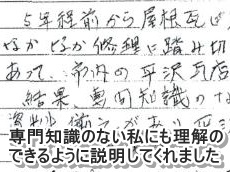 5年程前から屋根瓦が
なかなか修理に踏み切
あって、市内の平沢瓦店
結果、専門知識のな
専門知識のない私にも理解の
できるように説明してくれました